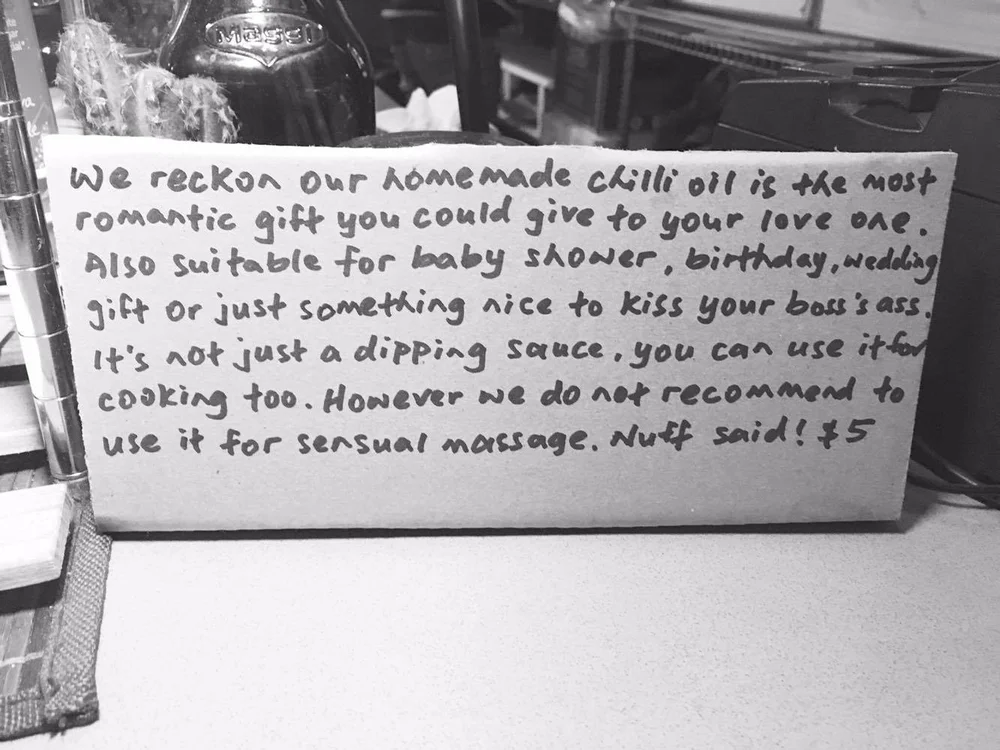 Massi
We reckon our homemade chilli oil is the most
romantic gift you could give to your love one.
Also suitable for baby shower, birthday, wedding
gift or just something nice to kiss your boss's ass.
It's not just a dipping sauce, you can use it for
cooking too. However we do not recommend to
use it for sensual massage. Nuff said! $5